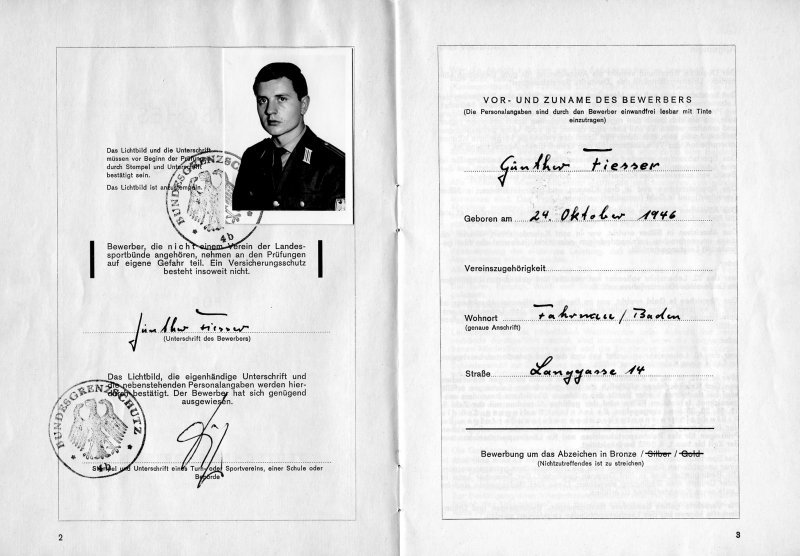 Das Lichtbild und die Unterschrift
müssen vor Beginn der Prüfung
durch Stempel und Unterschrift
bestätigt sein.
Das Lichtbild ist
BUNDESGRENZSCHUTZ
4b
Bewerber, die nicht einem Verein der Landes-
sportbünde angehören, nehmen an den Prüfungen
auf eigene Gefahr teil. Ein Versicherungsschutz
besteht insoweit nicht.
Günther Fiesser
(Unterschrift des Bewerbers)
Das Lichtbild, die eigenhändige Unterschrift und
die nebenstehenden Personalangaben werden hier-
durch bestätigt. Der Bewerber hat sich genügend
ausgewiesen.
BUNDESGRENZSCHUTZ
4b
Stempel und Unterschrift eines Turn- oder Sportvereins, einer Schule oder
Behörde
2
VOR- UND ZUNAME DES BEWERBERS
(Die Personalangaben sind durch den Bewerber einwandfrei lesbar mit Tinte
einzutragen)
Günther Fiesser
Geboren am 24. Oktober 1946
Vereinszugehörigkeit
Wohnort Fahrnau / Baden
(genaue Anschrift)
Straße Langgasse 14
Bewerbung um das Abzeichen in Bronze / Silber / Gold
(Nichtzutreffendes ist zu streichen)
3